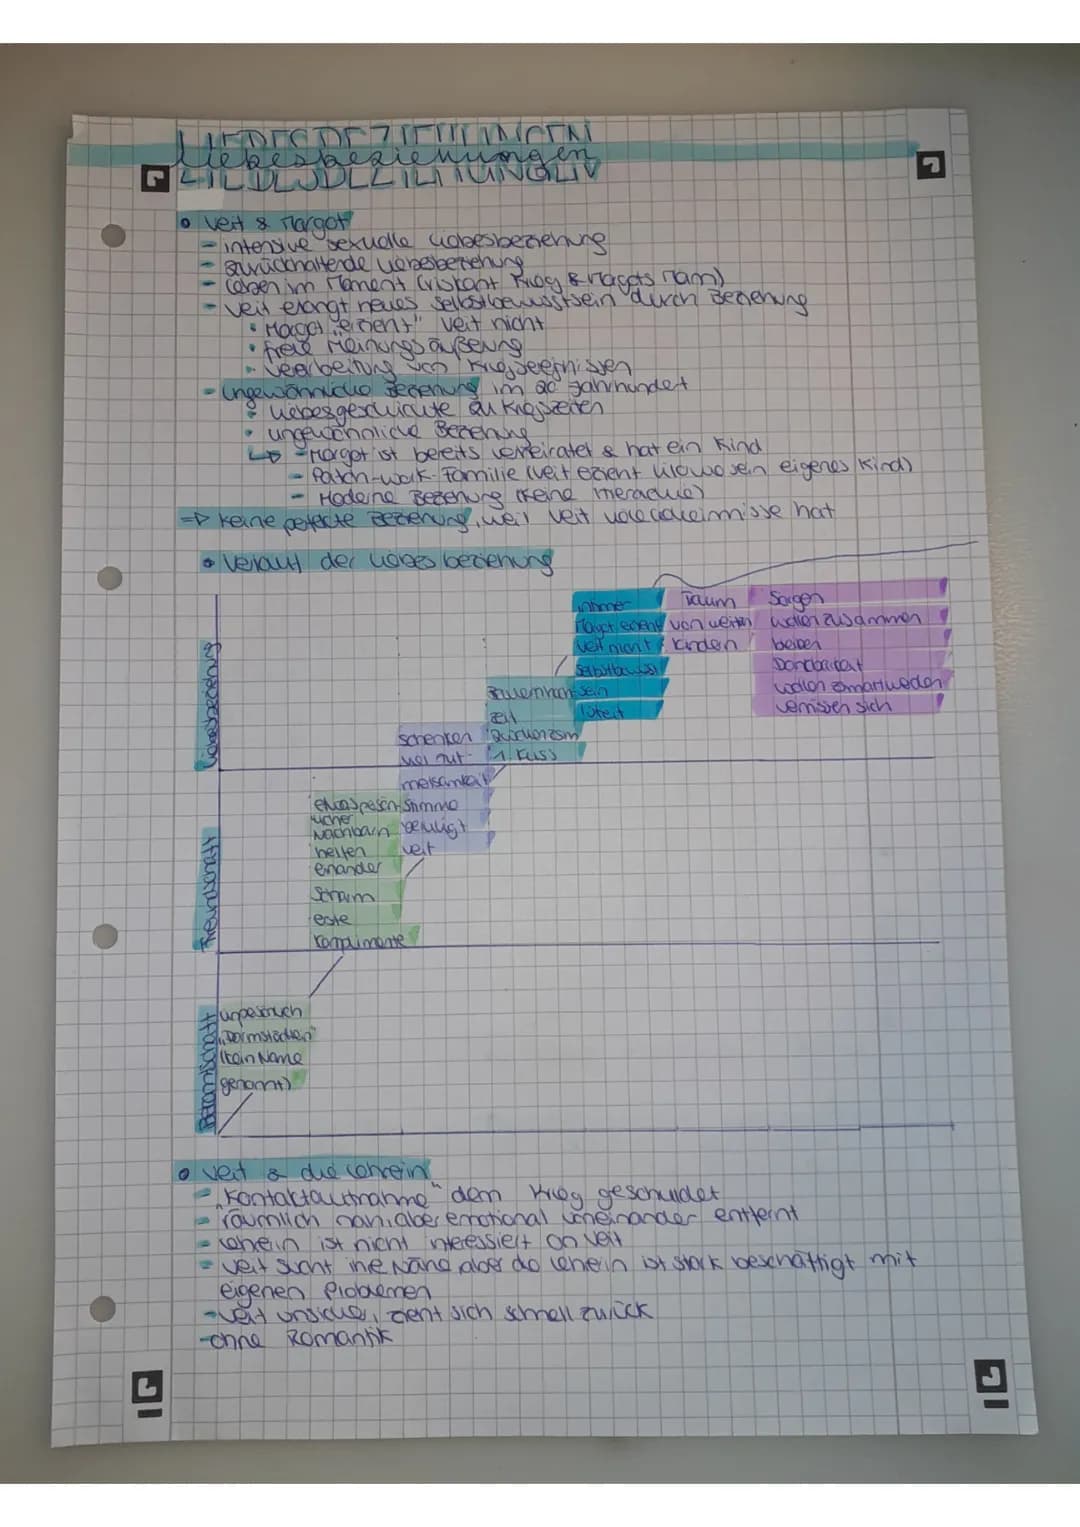 Liebesbeziehungen
• Veit & Margot
- intensive sexuelle Liebesbeziehung
- zurückhaltende Liebesbeziehung
- Leben im Moment (riskant Krieg & Margots Mann)
- Veit erlangt neues Selbstbewusstsein durch Beziehung
• Margot "erzieht" Veit nicht
• freie Meinungsäußerung
• Verarbeitung von Kriegsereignissen
- Ungewöhnliche Beziehung im 20 Jahrhundert
• Liebesgeschichte zu Kriegszeiten
• ungewöhnliche Beziehung
↳ - Margot ist bereits verheiratet & hat ein Kind
- Patch-work-Familie (Veit erzieht Lilo wo sein eigenes Kind)
- Moderne Beziehung (keine Hierachie)
=> keine perfekte Beziehung, weil Veit viele Geheimnisse hat
• Verlauf der Liebesbeziehung
Liebesbeziehung
Freundschaft
Bekanntschaft
intimer
Margot erzieht
Veit nicht
Selbstbewusst
sein
Traum
von weiteren
Kindern
Sorgen
wollen zusammen
bleiben
Dankbarkeit
wollen zsm alt werden
vermissen sich
zeit
1. Kuss
schenken
merksamkeit
Stimme
beruhigt
Veit
etwas persön-
licher
Nachbarn
helfen
einander
Scham
erste
Komplimente
unpersönlich
"Darmstädterin"
(kein Name
genannt)
• Veit & die Lehrerin
- "Kontaktaufnahme" dem Krieg geschuldet
- räumlich nah, aber emotional voneinander entfernt
- Lehrerin ist nicht interessiert an Veit
- Veit sucht ihre Nähe, aber die Lehrerin ist stark beschäftigt mit
eigenen Problemen
- Veit unsicher, zieht sich schnell zurück
- ohne Romantik